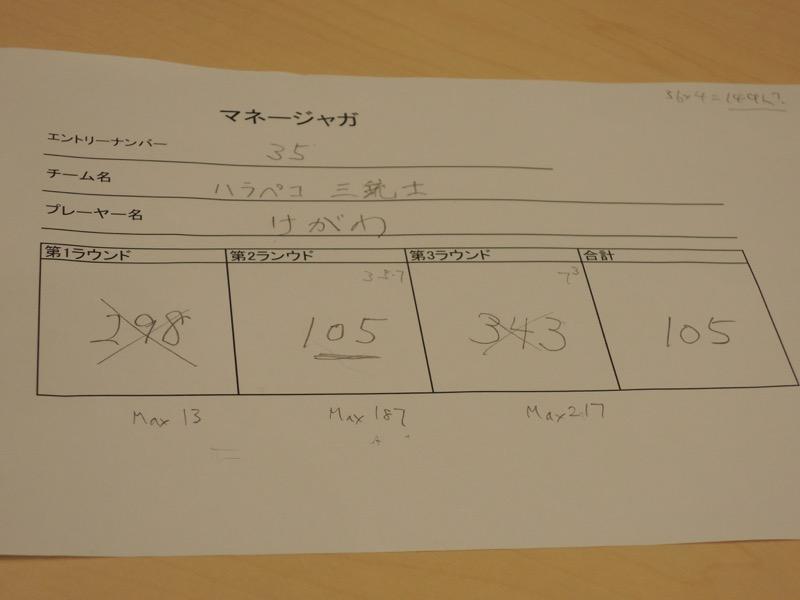 36×4=149h?
マネージャガ
エントリーナンバー 35
チーム名 ハラペコ 三銃士
プレーヤー名 けがわ
第1ラウンド 第2ランウド 第3ラウンド 合計
3・5・7 7³
298 105 343 105
Max 13 Max 187 Max 217